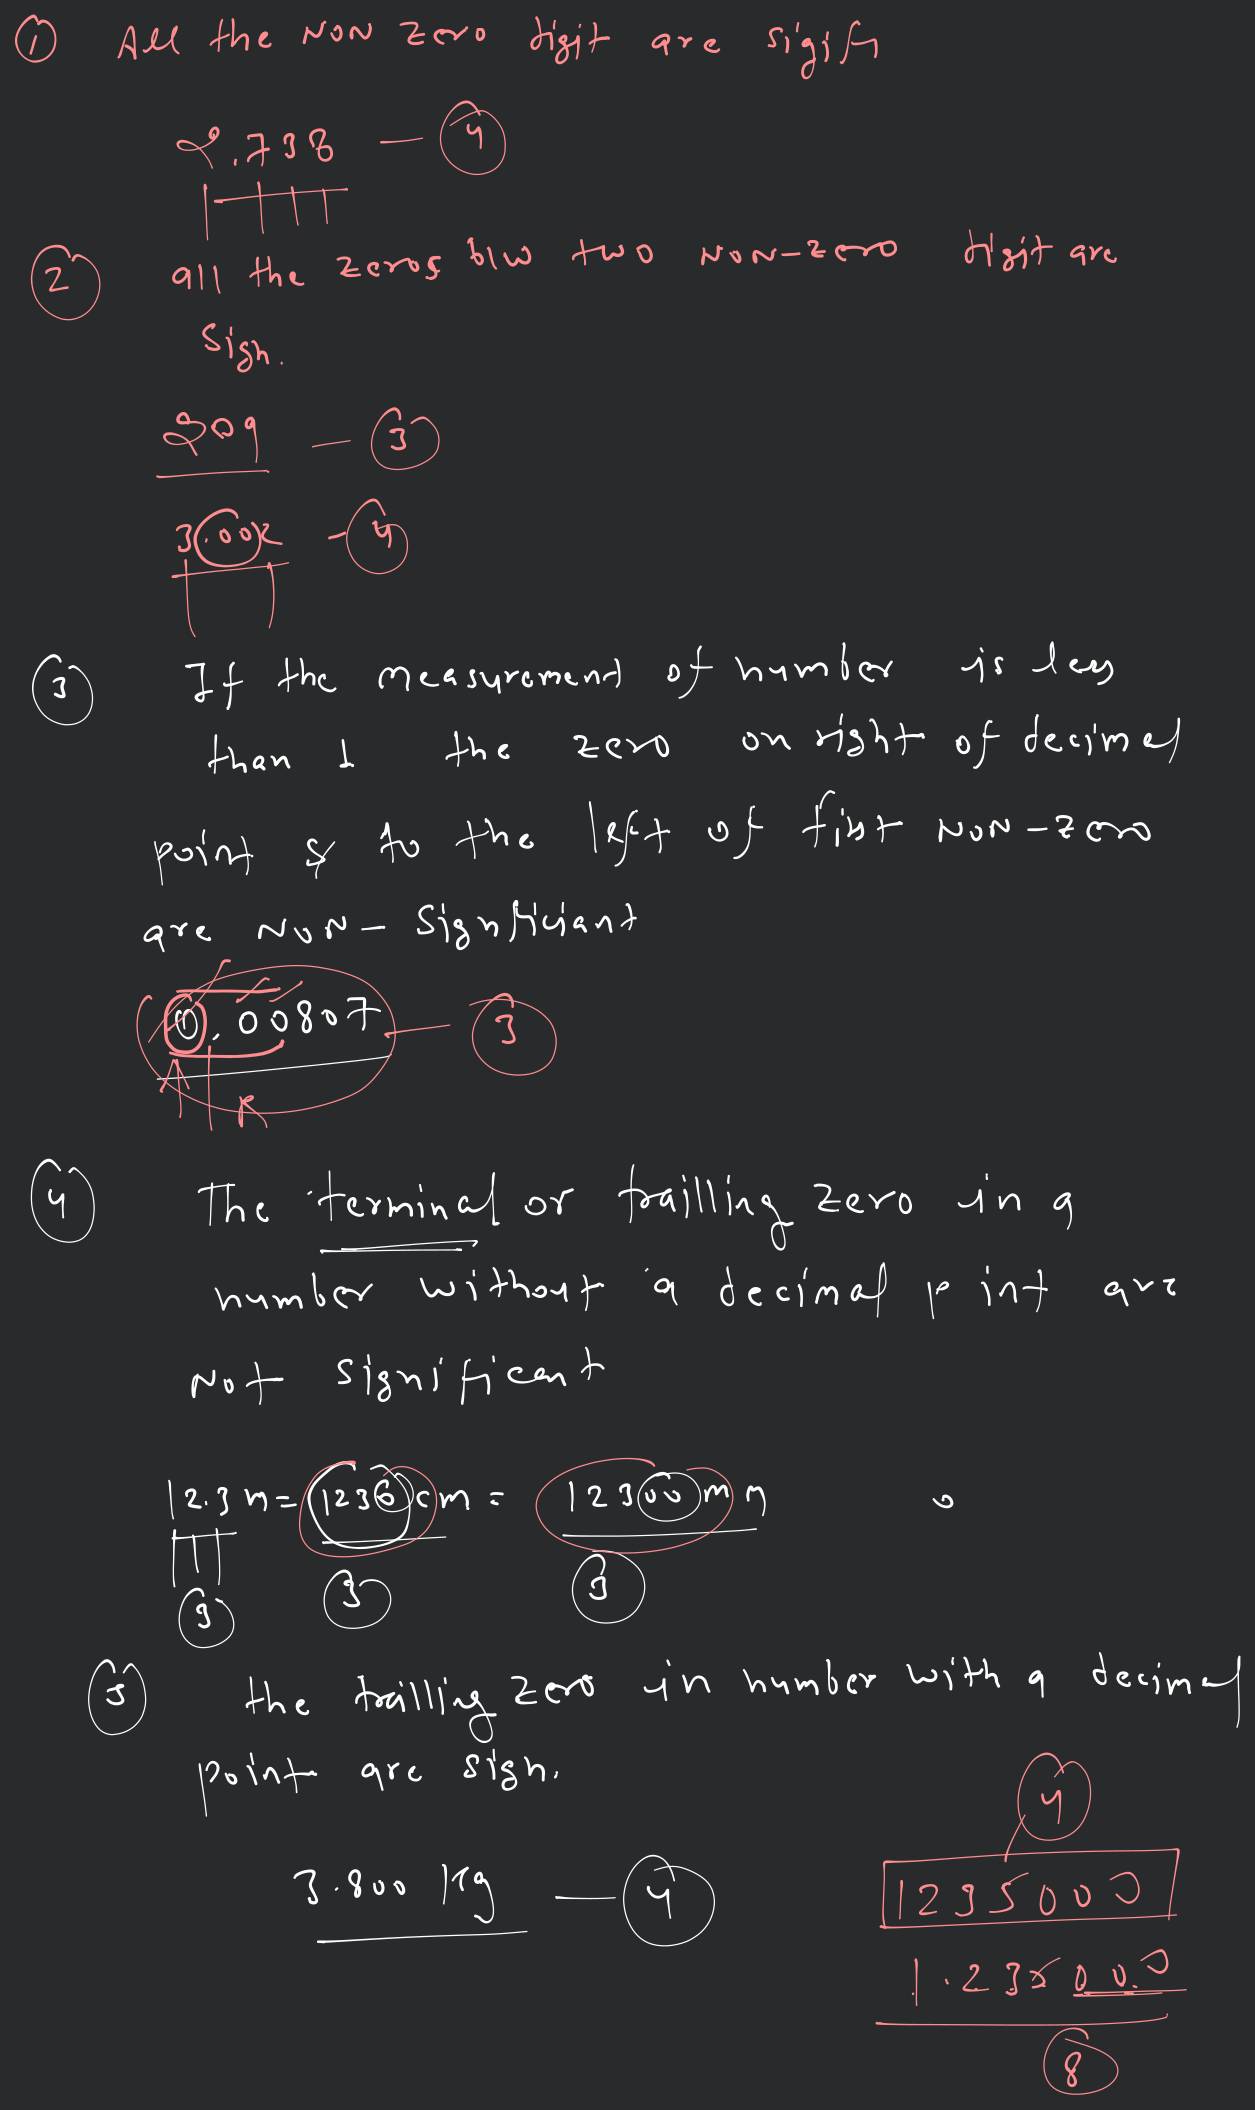 ① All the NON Zero digit are sigifi
2.738 — ④
② all the zeros b/w two NON-Zero digit are
Sign.
209 — ③
3.002 - ④
③ If the measurement of number is less
than 1 the zero on right of decimal
point & to the left of first NON-Zero
are NON- Signficiant
0.00807 — ③
R
④ The terminal or trailling zero in a
number without a decimal point are
Not significant
12.3 m = 1230 cm = 12300 mm
③ ③ ③
⑤ the trailling zero in number with a decimal
point are sign.
④
3.800 kg — ④ 1235000
1.235000
⑧